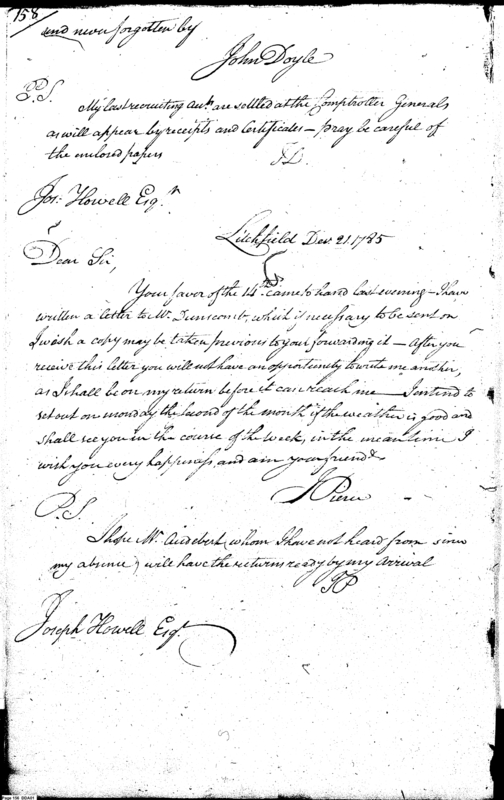 158
and never forgotten by
John Doyle
P.S.
My last recruiting acts. are settled at the Comptroller Generals
as will appear by receipts and Certificates — pray be careful of
the enclosed papers
JD
Jos: Howell Esqr
Litchfield Decr 21. 1785
Dear Sir,
Your favor of the 14th came to hand last evening — I have
written a letter to Mr Dunscomb, which if necessary to be sent on
I wish a copy may be taken previous to your forwarding it — After you
receive this letter you will not have an opportunity to write me another,
as I shall be on my return before it can reach me — I intend to
set out on monday the second of the month if the weather is good and
shall see you in the course of the week, in the mean time I
wish you every happiness, and am your friend &
J Pierce
P.S.
I hope Mr Audebert, whom I have not heard from since
my absence, will have the returns ready by my arrival
JP
Joseph Howell Esqr